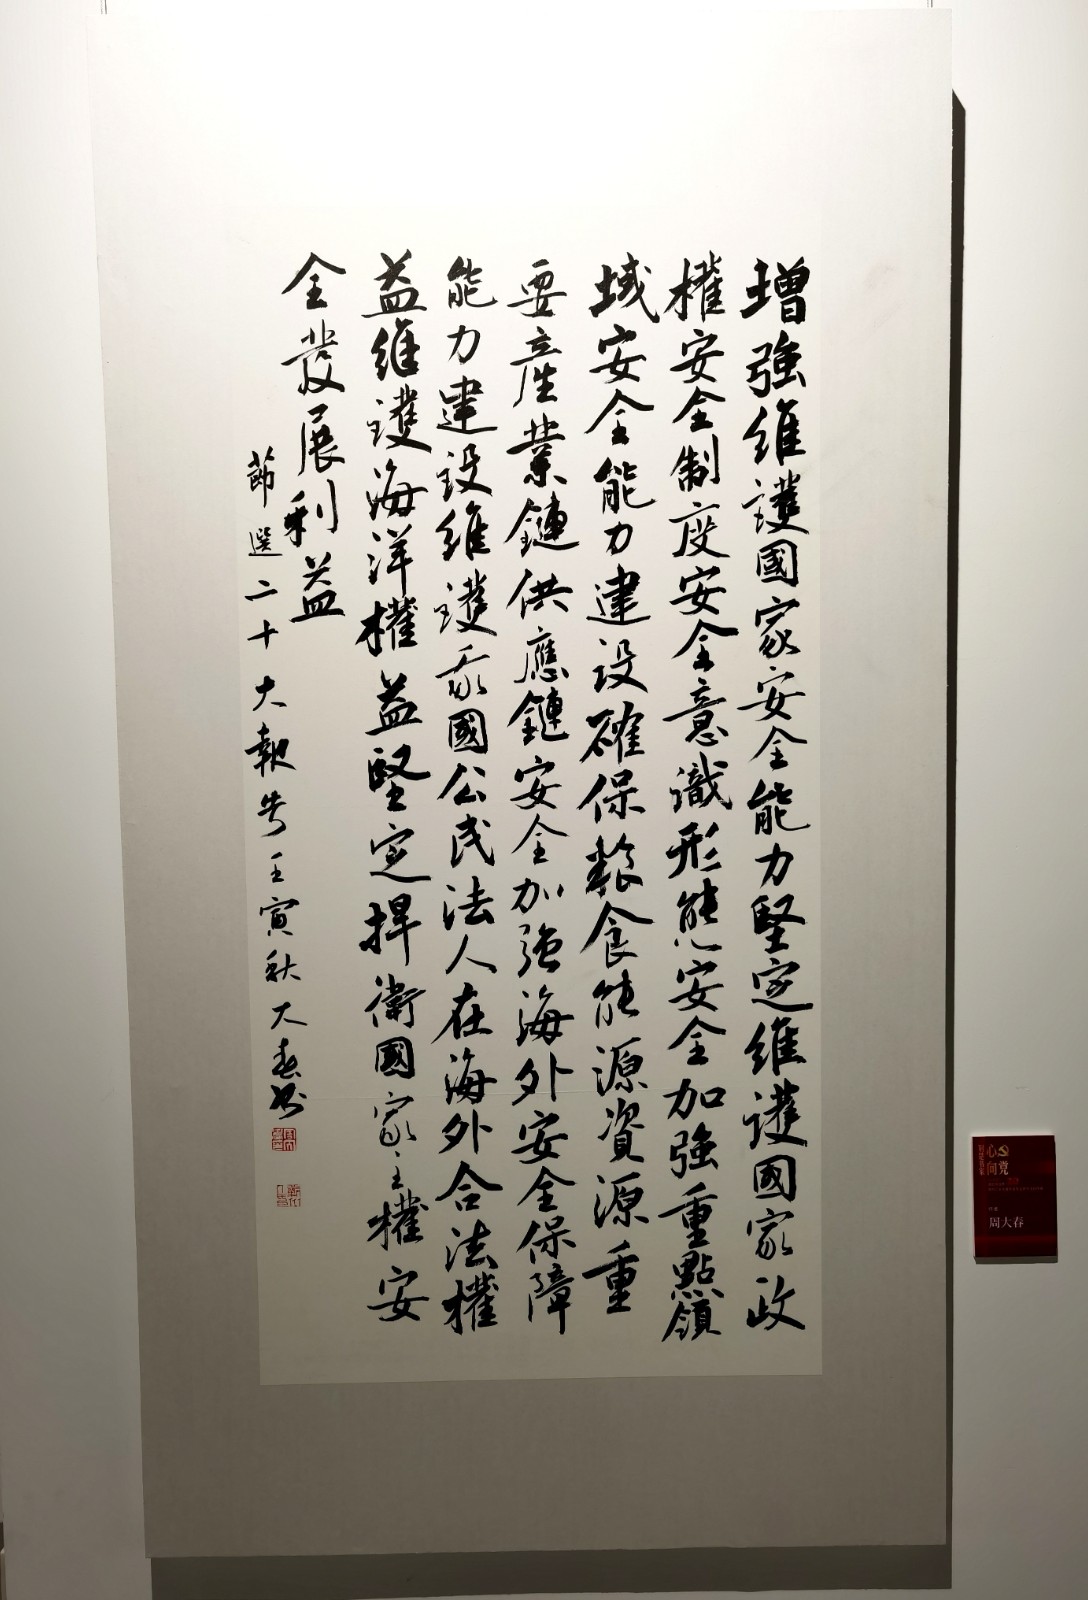 增強維護國家安全能力堅定維護國家政
權安全制度安全意識形態安全加強重點領
域安全能力建設確保粮食能源資源重
要產業鏈供應鏈安全加強海外安全保障
能力建設維護我國公民法人在海外合法權
益維護海洋權益堅定捍衛國家主權安
全發展利益
節選二十大報告壬寅秋大春书
心向党
周大春